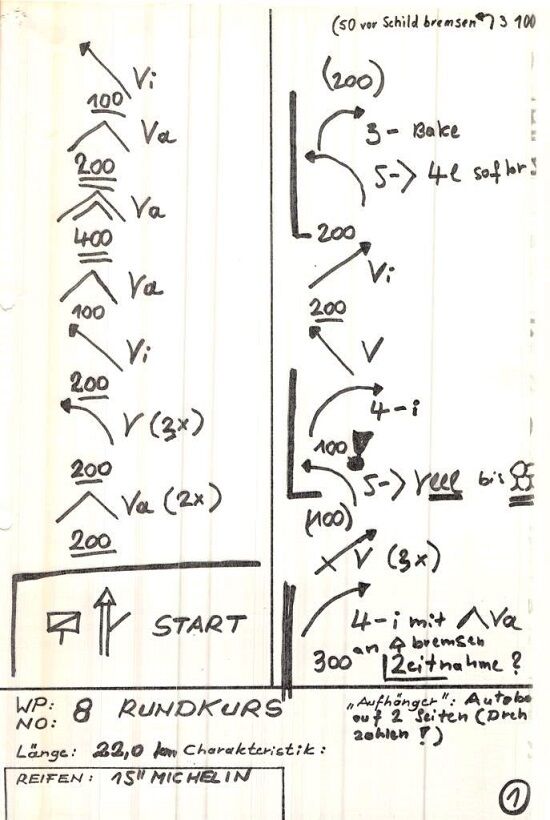 Vi
100
Va
200
Va
400
Va
100
Vi
200
V (3x)
200
Va (2x)
200
START
(50 vor Schild bremsen 3 100
(200)
3 - Bake
5-> 4l sofort!
200
Vi
200
V
4-i
100!
5-> bis
(100)
V (3x)
4-i mit Va
an bremsen
300 Zeitnahme?
WP: 8 RUNDKURS
NO:
Länge: 22,0 km Charakteristik:
„Aufhänger": Autobe
auf 2 Seiten (Dreh
zahlen!)
REIFEN: 15" MICHELIN
1